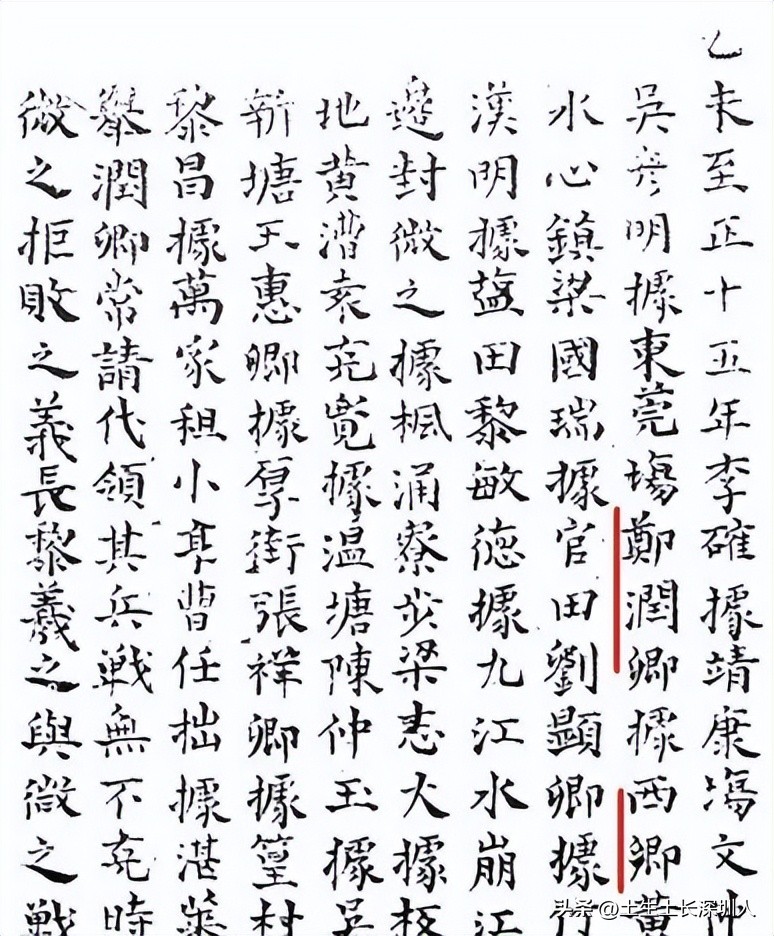 乙未至正十五年李確據靖康塲文仲
吳彥明據東莞塲鄭潤卿據西鄉黄
水心鎮梁國瑞據官田劉顯卿據竹
漢明據塩田黎敏德據九江水崩江
邊封微之據楓涌寮步梁志大據板
地黄漕袁克寛據温塘陳仲玉據吴
新塘王惠卿據厚街張祥卿據篁村
黎昌據萬家租小亨曹任拙據湛菜
舉潤卿常請代領其兵戦無不克時
微之拒敗之義長黎羲之與微之戦
头条 @土生土长深圳人